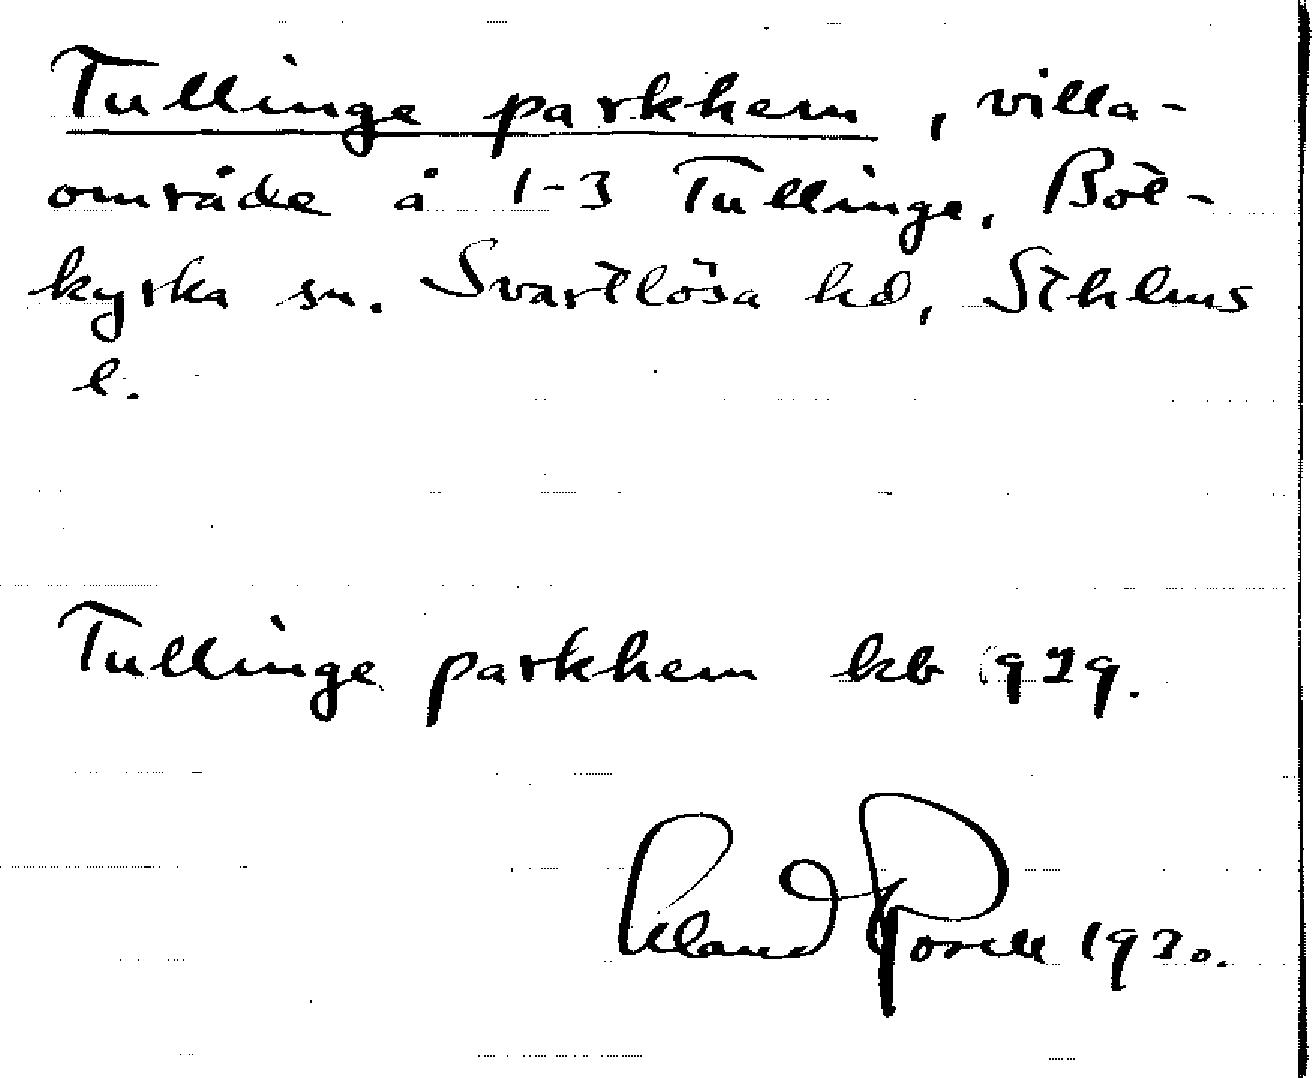 Tullinge parkhem, villa-
område å 1-3 Tullinge, Bot-
kyrka sn. Svartlösa hd, Sthlms
l.
Tullinge parkhem kb 1929.
Erland Rosell 1930.